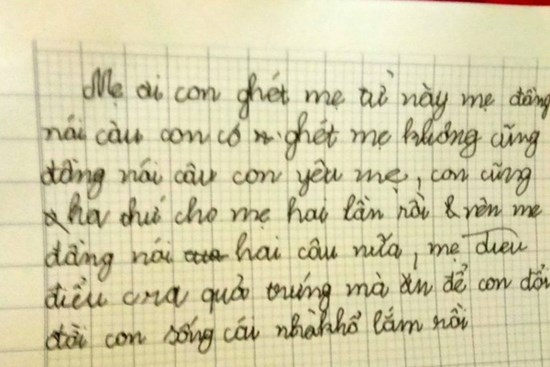 Mẹ ơi con ghét mẹ từ này mẹ đừng
nói câu con có ghét mẹ không cũng
đừng nói câu con yêu mẹ, con cũng
tha thứ cho mẹ hai lần rồi & nên mẹ
đừng nói hai câu nữa, mẹ
điểu cưa quả trứng mà ăn để con đổi
đời con sống cái nhà khổ lắm rồi